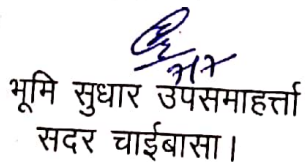 भूमि सुधार उपसमाहर्त्ता
सदर चाईबासा।